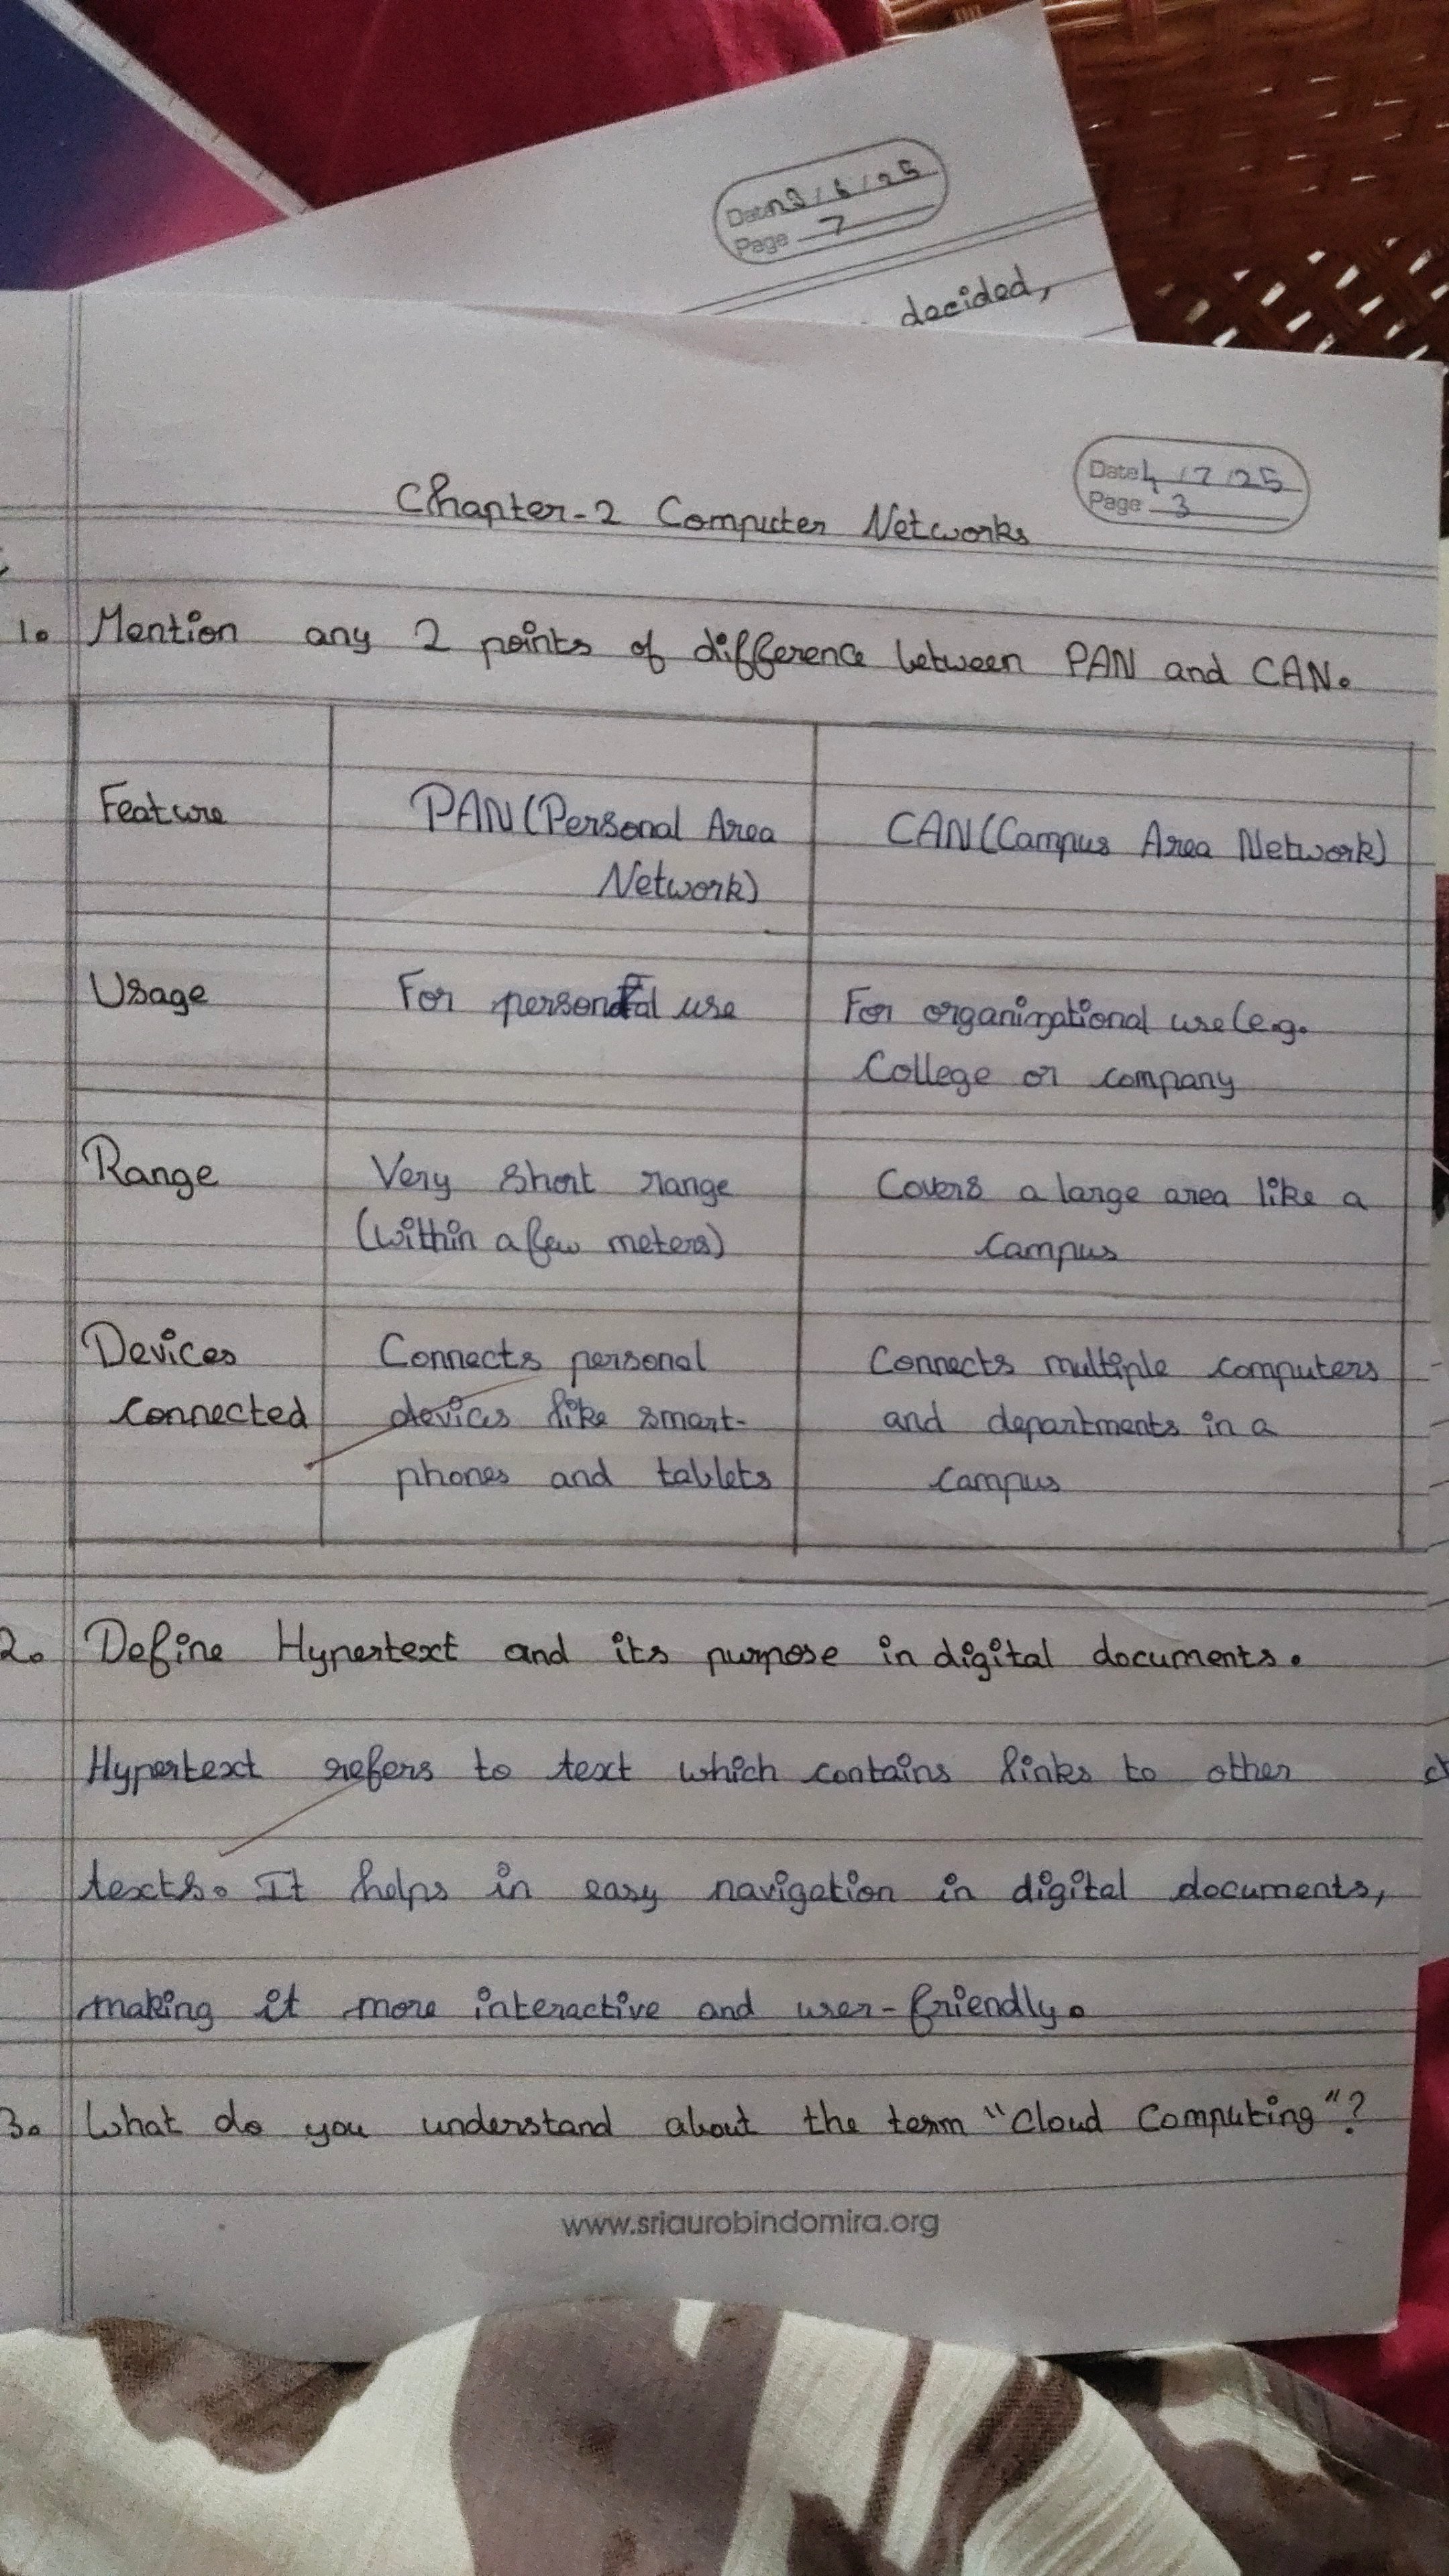 Date 23/6/25
Page 7
decided,
Date 4/7/25
Page 3
Chapter-2 Computer Networks
1. Mention any 2 points of difference between PAN and CAN.
Feature PAN(Personal Area CAN(Campus Area Network)
Network)
Usage For personal use For organizational use(e.g.
College or company
Range Very short range Covers a large area like a
(within a few meters) campus
Devices Connects personal Connects multiple computers
connected devices like smart- and departments in a
phones and tablets campus
2. Define Hypertext and its purpose in digital documents.
Hypertext refers to text which contains links to other
texts. It helps in easy navigation in digital documents,
making it more interactive and user-friendly.
3. What do you understand about the term "Cloud Computing"?
www.sriaurobindomira.org